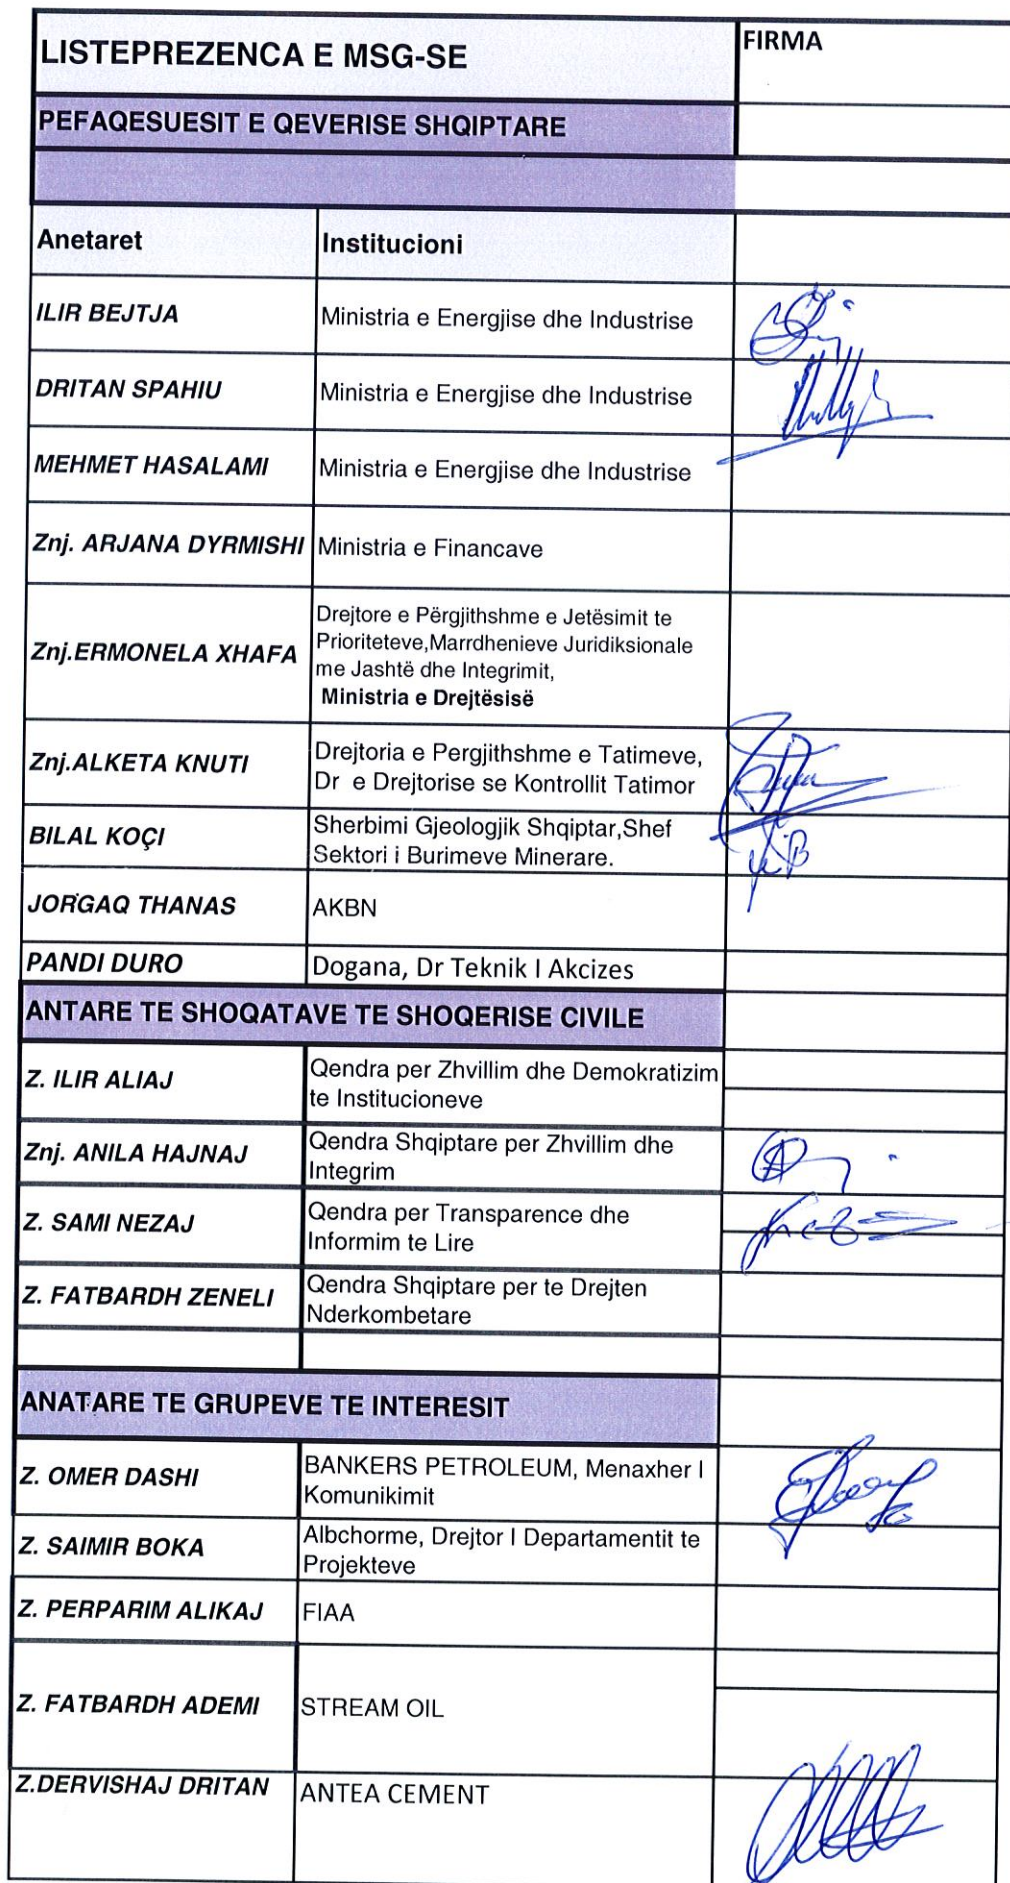 LISTEPREZENCA E MSG-SE
FIRMA
PEFAQESUESIT E QEVERISE SHQIPTARE
Anetaret
Institucioni
ILIR BEJTJA
Ministria e Energjise dhe Industrise
DRITAN SPAHIU
Ministria e Energjise dhe Industrise
MEHMET HASALAMI
Ministria e Energjise dhe Industrise
Znj. ARJANA DYRMISHI
Ministria e Financave
Znj.ERMONELA XHAFA
Drejtore e Përgjithshme e Jetësimit te
Prioriteteve,Marrdhenieve Juridiksionale
me Jashtë dhe Integrimit,
Ministria e Drejtësisë
Znj.ALKETA KNUTI
Drejtoria e Pergjithshme e Tatimeve,
Dr e Drejtorise se Kontrollit Tatimor
BILAL KOÇI
Sherbimi Gjeologjik Shqiptar,Shef
Sektori i Burimeve Minerare.
JORGAQ THANAS
AKBN
PANDI DURO
Dogana, Dr Teknik I Akcizes
ANTARE TE SHOQATAVE TE SHOQERISE CIVILE
Z. ILIR ALIAJ
Qendra per Zhvillim dhe Demokratizim
te Institucioneve
Znj. ANILA HAJNAJ
Qendra Shqiptare per Zhvillim dhe
Integrim
Z. SAMI NEZAJ
Qendra per Transparence dhe
Informim te Lire
Z. FATBARDH ZENELI
Qendra Shqiptare per te Drejten
Nderkombetare
ANATARE TE GRUPEVE TE INTERESIT
Z. OMER DASHI
BANKERS PETROLEUM, Menaxher I
Komunikimit
Z. SAIMIR BOKA
Albchorme, Drejtor I Departamentit te
Projekteve
Z. PERPARIM ALIKAJ
FIAA
Z. FATBARDH ADEMI
STREAM OIL
Z.DERVISHAJ DRITAN
ANTEA CEMENT